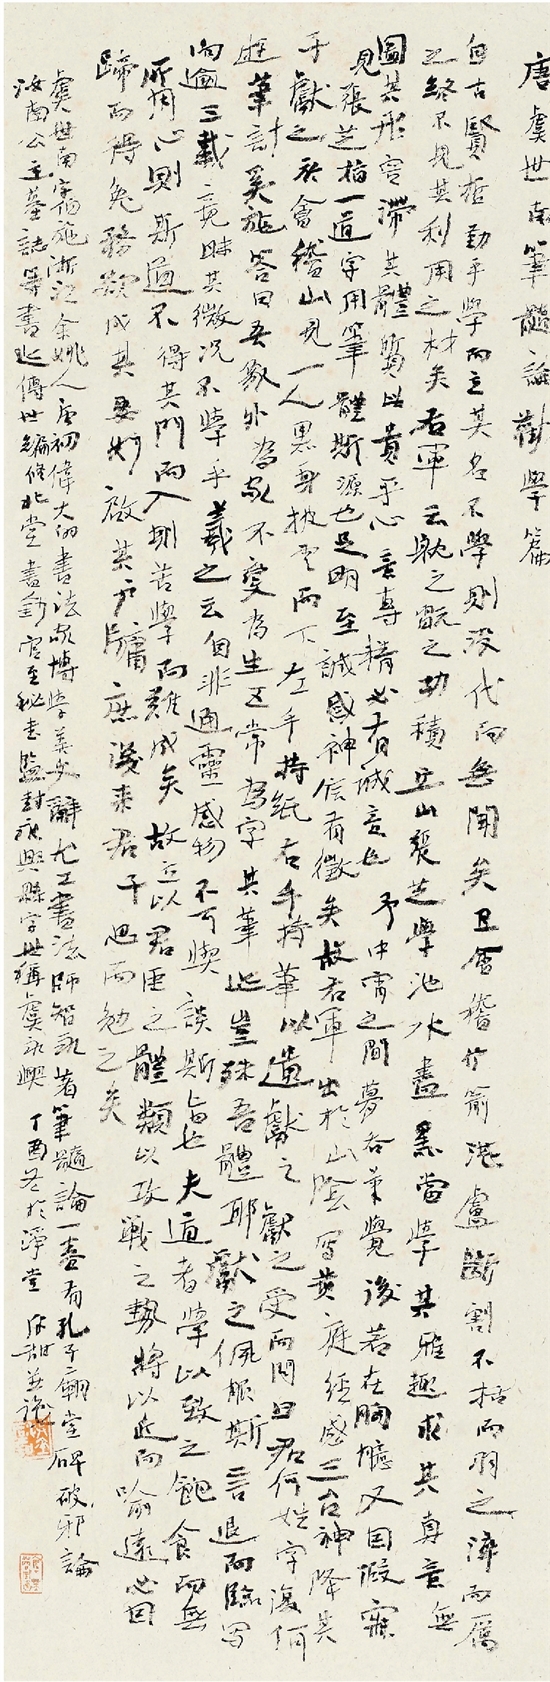 唐虞世南筆髓論勸學篇
自古賢哲勤乎學而立其名不學則沒代而無聞矣且會稽竹箭湛盧斷割不括而羽之淬而厲
之終不見其利用之材矣右軍云耽之翫之功積丘山張芝學池水盡黑當學其雅趣求其真意無
圖其形容滯其體質以貴乎心意專精必有誠意也予中宵之間夢吞筆覺後若在胸臆又因假寐
見張芝指一道字用筆體斯源也足明至誠感神信有徵矣故右軍出於山陰寫黃庭經感三台神降其
子獻之於會稽山見一人黑身披雲而下左手持紙右手持筆以遺獻之獻之受而問曰君何姓字復何
遊筆計奚施答曰吾象外為家不變為生五常為字其筆迹豈殊吾體耶獻之佩服斯言退而臨寫
向逾三載竟昧其微况不學乎羲之云自非通靈感物不可與談斯旨也夫道者學以致之飽食而無
所用心則斯道不得其門而入則苦學而難成矣故立以君臣之體類以攻戰之勢將以近而喻遠必因
蹄而得兔務欲成其要妙啟其户牖庶後來君子思而勉之矣
虞世南字伯施浙江余姚人唐初偉大的書法家博學善文辭尤工書法師智永著筆髓論一卷有孔子廟堂碑破邪論
汝南公主墓誌等書迹傳世編修北堂書鈔官至秘書監封永興縣子世稱虞永興丁酉冬於淨堂甜並識